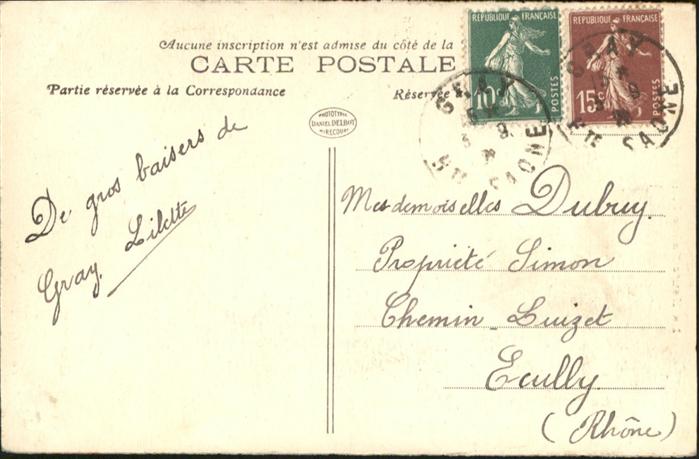 Aucune inscription n'est admise du côté de la
CARTE POSTALE
Partie réservée à la Correspondance
Réservée
PHOTOTYPIE
DANIEL DELBOY
MIRECOURT
RÉPUBLIQUE FRANÇAISE
10c
POSTES
RÉPUBLIQUE FRANÇAISE
15c
POSTES
GRAY
Hte SAONE
GRAY
Hte SAONE
De gros baisers de
Gray. Lilette
Mesdemoiselles Dubuy.
Propriété Simon
Chemin Luizet
Ecully
(Rhône)